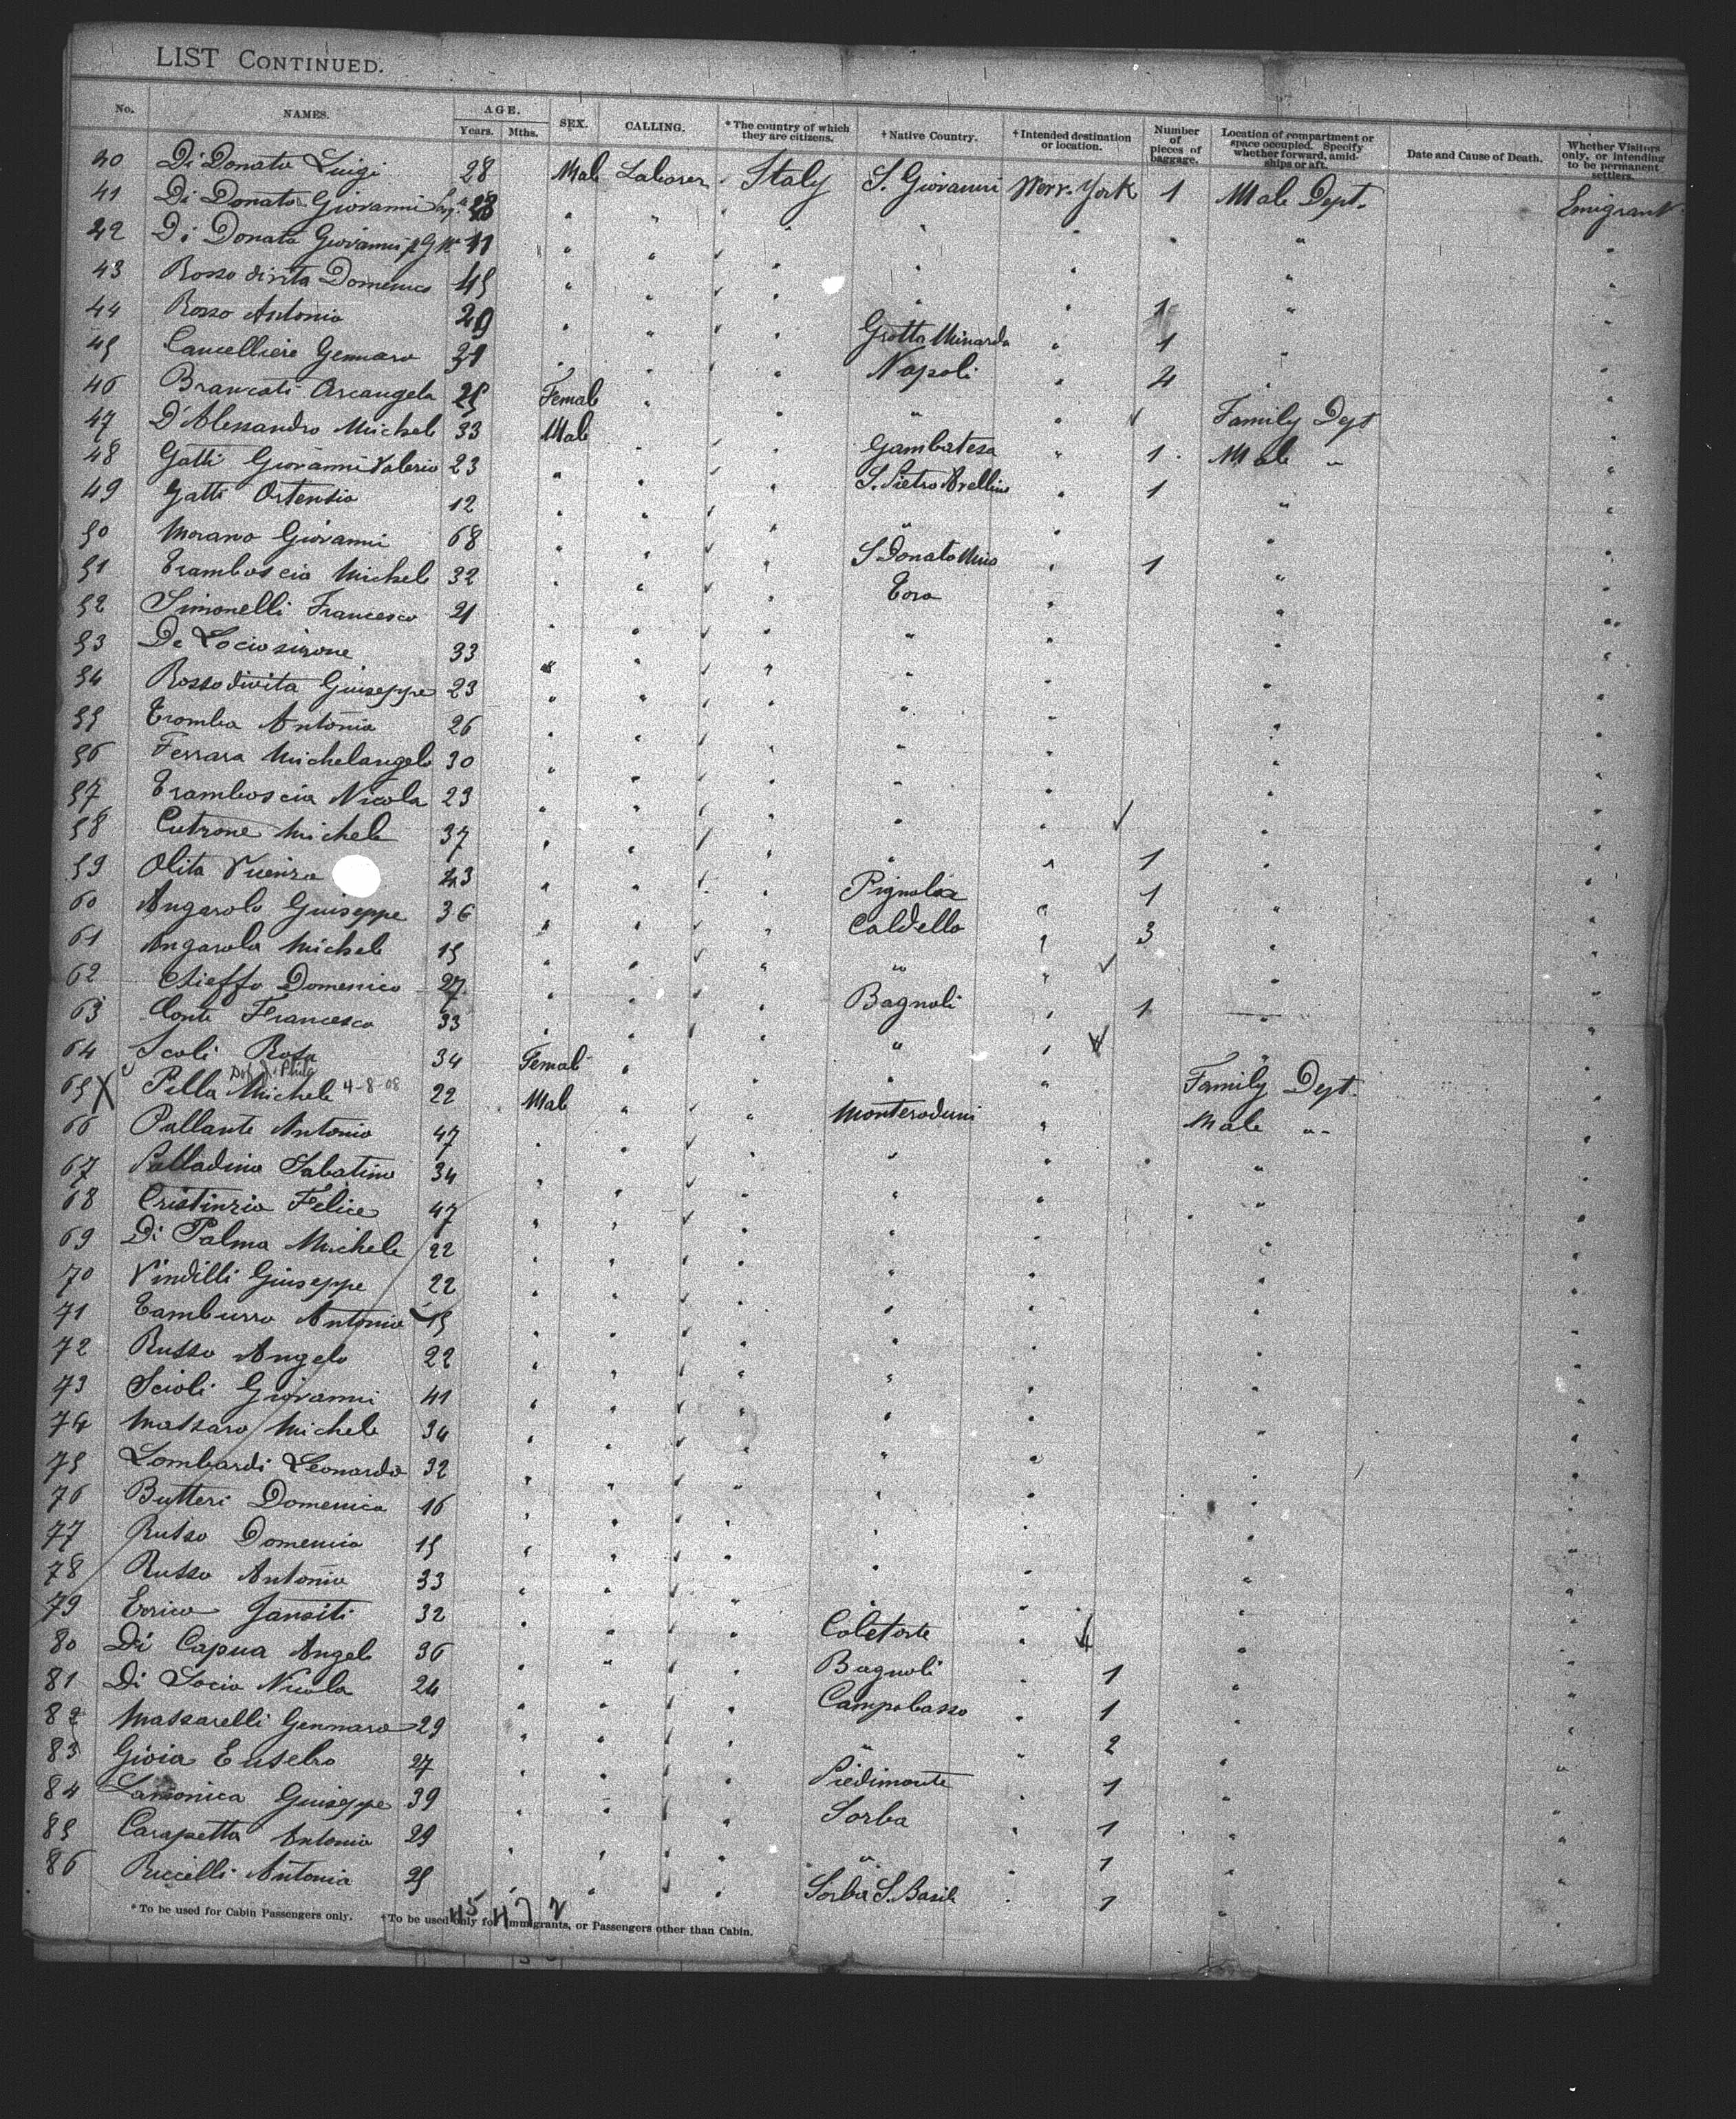 LIST CONTINUED.
No. NAMES. AGE. Years. Mths. SEX. CALLING. * The country of which they are citizens. † Native Country. † Intended destination or location. Number of pieces of baggage. Location of compartment or space occupied. Specify whether forward, amidships or aft. Date and Cause of Death. Whether Visitors only, or intending to be permanent settlers.
40 Di Donato Luigi 28 Male Laborer Italy S. Giovanni New-York 1 Male Dept. Emigrant
41 Di Donato Giovanni 28 " " " " " " "
42 Di Donato Giovanni " " " " " " "
43 Rossodivita Domenico 45 " " " " " " "
44 Rosso Antonio 29 " " " Grotta Minarda " 1 " "
45 Cancelliere Gennaro 31 " " " Napoli " 1 " "
46 Brancati Arcangela 25 Female " " " " 4 Family Dept "
47 D'Alessandro Michele 33 Male " " Gambatesa " 1 Male " "
48 Gatti Giovanni Valerio 23 " " " S. Pietro Avellino " 1 " "
49 Gatti Ortensio 12 " " " " " " "
50 Morano Giovanni 68 " " " S Donato " 1 " "
51 Tramboscia Michele 32 " " " Toro " " "
52 Simonelli Francesco 21 " " " " " " "
53 De Lociosimone 33 " " " " " " "
54 Rossodivita Giuseppe 23 " " " " " " "
55 Tromba Antonio 26 " " " " " " "
56 Ferrara Michelangelo 30 " " " " " " "
57 Tramboscia Nicola 23 " " " " " " "
58 Cutrone Michele 37 " " " " " 1 " "
59 Olita 43 " " " Pignola " 1 " "
60 Angarola Giuseppe 36 " " " Caldello " 3 " "
61 Angarola Michele 15 " " " " " " "
62 Chieffo Domenico 27 " " " Bagnoli " 1 " "
63 Conte Francesco 33 " " " " " " "
64 Scoli Rosa 34 Female " " " " Family Dept. "
65 X Pella Michele 4-8-08 22 Male " " Monteroduni " Male " "
66 Pallante Antonio 47 " " " " " " "
67 Palladino Sabatino 34 " " " " " " "
68 Cristinzio Felice 47 " " " " " " "
69 Di Palma Michele 22 " " " " " " "
70 Vindilli Giuseppe 22 " " " " " " "
71 Tamburro Antonio 15 " " " " " " "
72 Russo Angelo 22 " " " " " " "
73 Scioli Giovanni 41 " " " " " " "
74 Massaro Michele 34 " " " " " " "
75 Lombardi Leonardo 32 " " " " " " "
76 Butteri Domenico 16 " " " " " " "
77 Russo Domenico 15 " " " " " " "
78 Russo Antonio 33 " " " " " " "
79 Errico Jansiti 32 " " " Coletorte " " "
80 Di Capua Angelo 36 " " " Bagnoli " 1 " "
81 Di Socio Nicola 24 " " " Campobasso " 1 " "
82 Massarelli Gennaro 29 " " " " " 2 " "
83 Gioia Eusebio 27 " " " Piedimonte " 1 " "
84 Lamonica Giuseppe 39 " " " Sorba " 1 " "
85 Carapetta Antonio 29 " " " " " 1 " "
86 Riccelli Antonio 25 " " " Sorba S. Basile " 1 " "
* To be used for Cabin Passengers only. † To be used only for Immigrants, or Passengers other than Cabin.